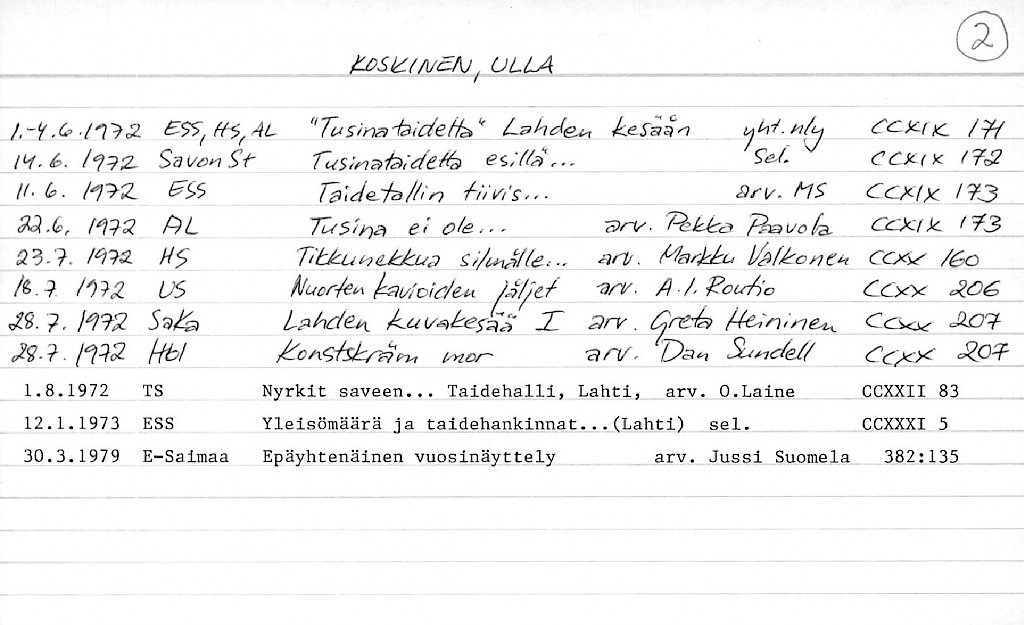 2
KOSKINEN, ULLA
1.-4.6.1972 ESS, HS, AL "Tusinataidetta" Lahden kesään yht. nly CCXIX 171
14.6.1972 Savon St Tusinataidetta esillä... sel. CCXIX 172
11.6.1972 ESS Taidetallin tiivis... arv. MS CCXIX 173
22.6.1972 AL Tusina ei ole... arv. Pekka Paavola CCXIX 173
23.7.1972 HS Tikkunekkua silmälle... arv. Markku Valkonen CCXX 160
18.7.1972 US Nuorten kavioiden jäljet arv. A.I. Routio CCXX 206
28.7.1972 SaKa Lahden kuvakesää I arv. Greta Heininen CCXX 207
28.7.1972 Hbl Konstskräm mor arv. Dan Sundell CCXX 207
1.8.1972 TS Nyrkit saveen... Taidehalli, Lahti, arv. O.Laine CCXXII 83
12.1.1973 ESS Yleisömäärä ja taidehankinnat...(Lahti) sel. CCXXXI 5
30.3.1979 E-Saimaa Epäyhtenäinen vuosinäyttely arv. Jussi Suomela 382:135